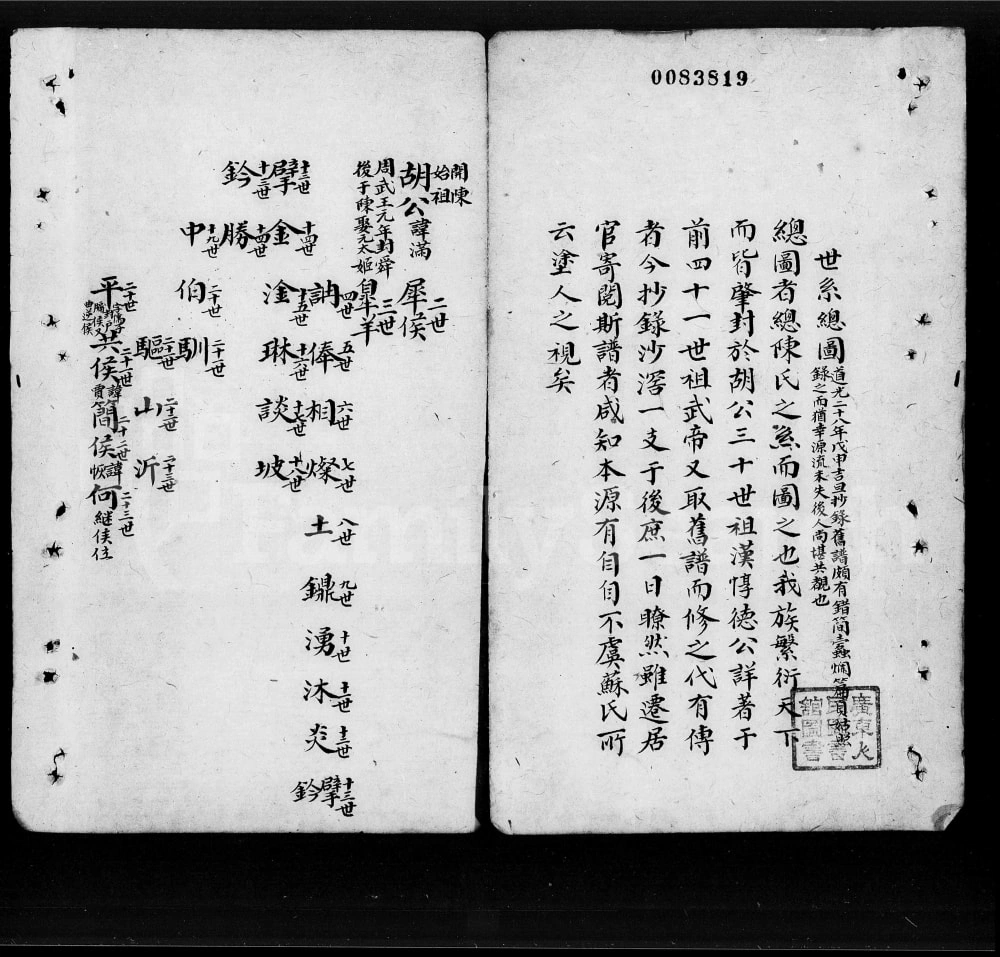 0083819
世系總圖
道光二十八年戊申吉旦抄錄舊譜頗有錯簡蠹爛篇頁姑照
錄之而猶幸源流未失後人尚堪共觀也
總圖者總陳氏之系而圖之也我族繁衍天下
而皆肇封於胡公三十世祖漢惇德公詳著于
前四十一世祖武帝又取舊譜而修之代有傳
者今抄錄沙滘一支于後庶一日瞭然雖遷居
官寄閱斯譜者咸知本源有自自不虞蘇氏所
云塗人之視矣
廣東人
館圖書
開陳
始祖
胡公諱滿
周武王元年封舜
後于陳娶元太姬
二世
犀侯
三世
皐羊
四世 五世 六世 七世 八世 九世 十世 十一世 十二世 十三世
訥 俸 相 燦 土 鐤 湧 沐 炎 擘 鈐
十三世 十四世 十五世 十六世 十七世 十八世
擘 金 淦 琳 談 坡
十三世 十四世
鈐 勝
十九世 二十世 二十一世
申 伯 馴
二十一世 二十二世 二十三世
驅 山 沂
二十世 二十一世 二十二世 二十三世
平 共侯諱買 簡侯諱恢 何繼侯位